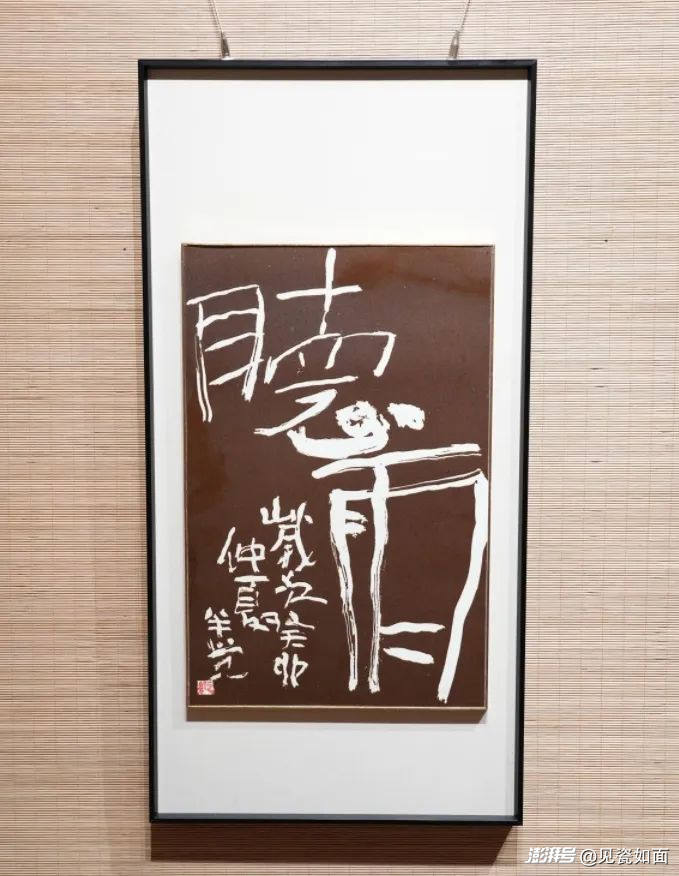 聽雨
歲在癸卯
仲夏
澎湃号 @见瓷如面